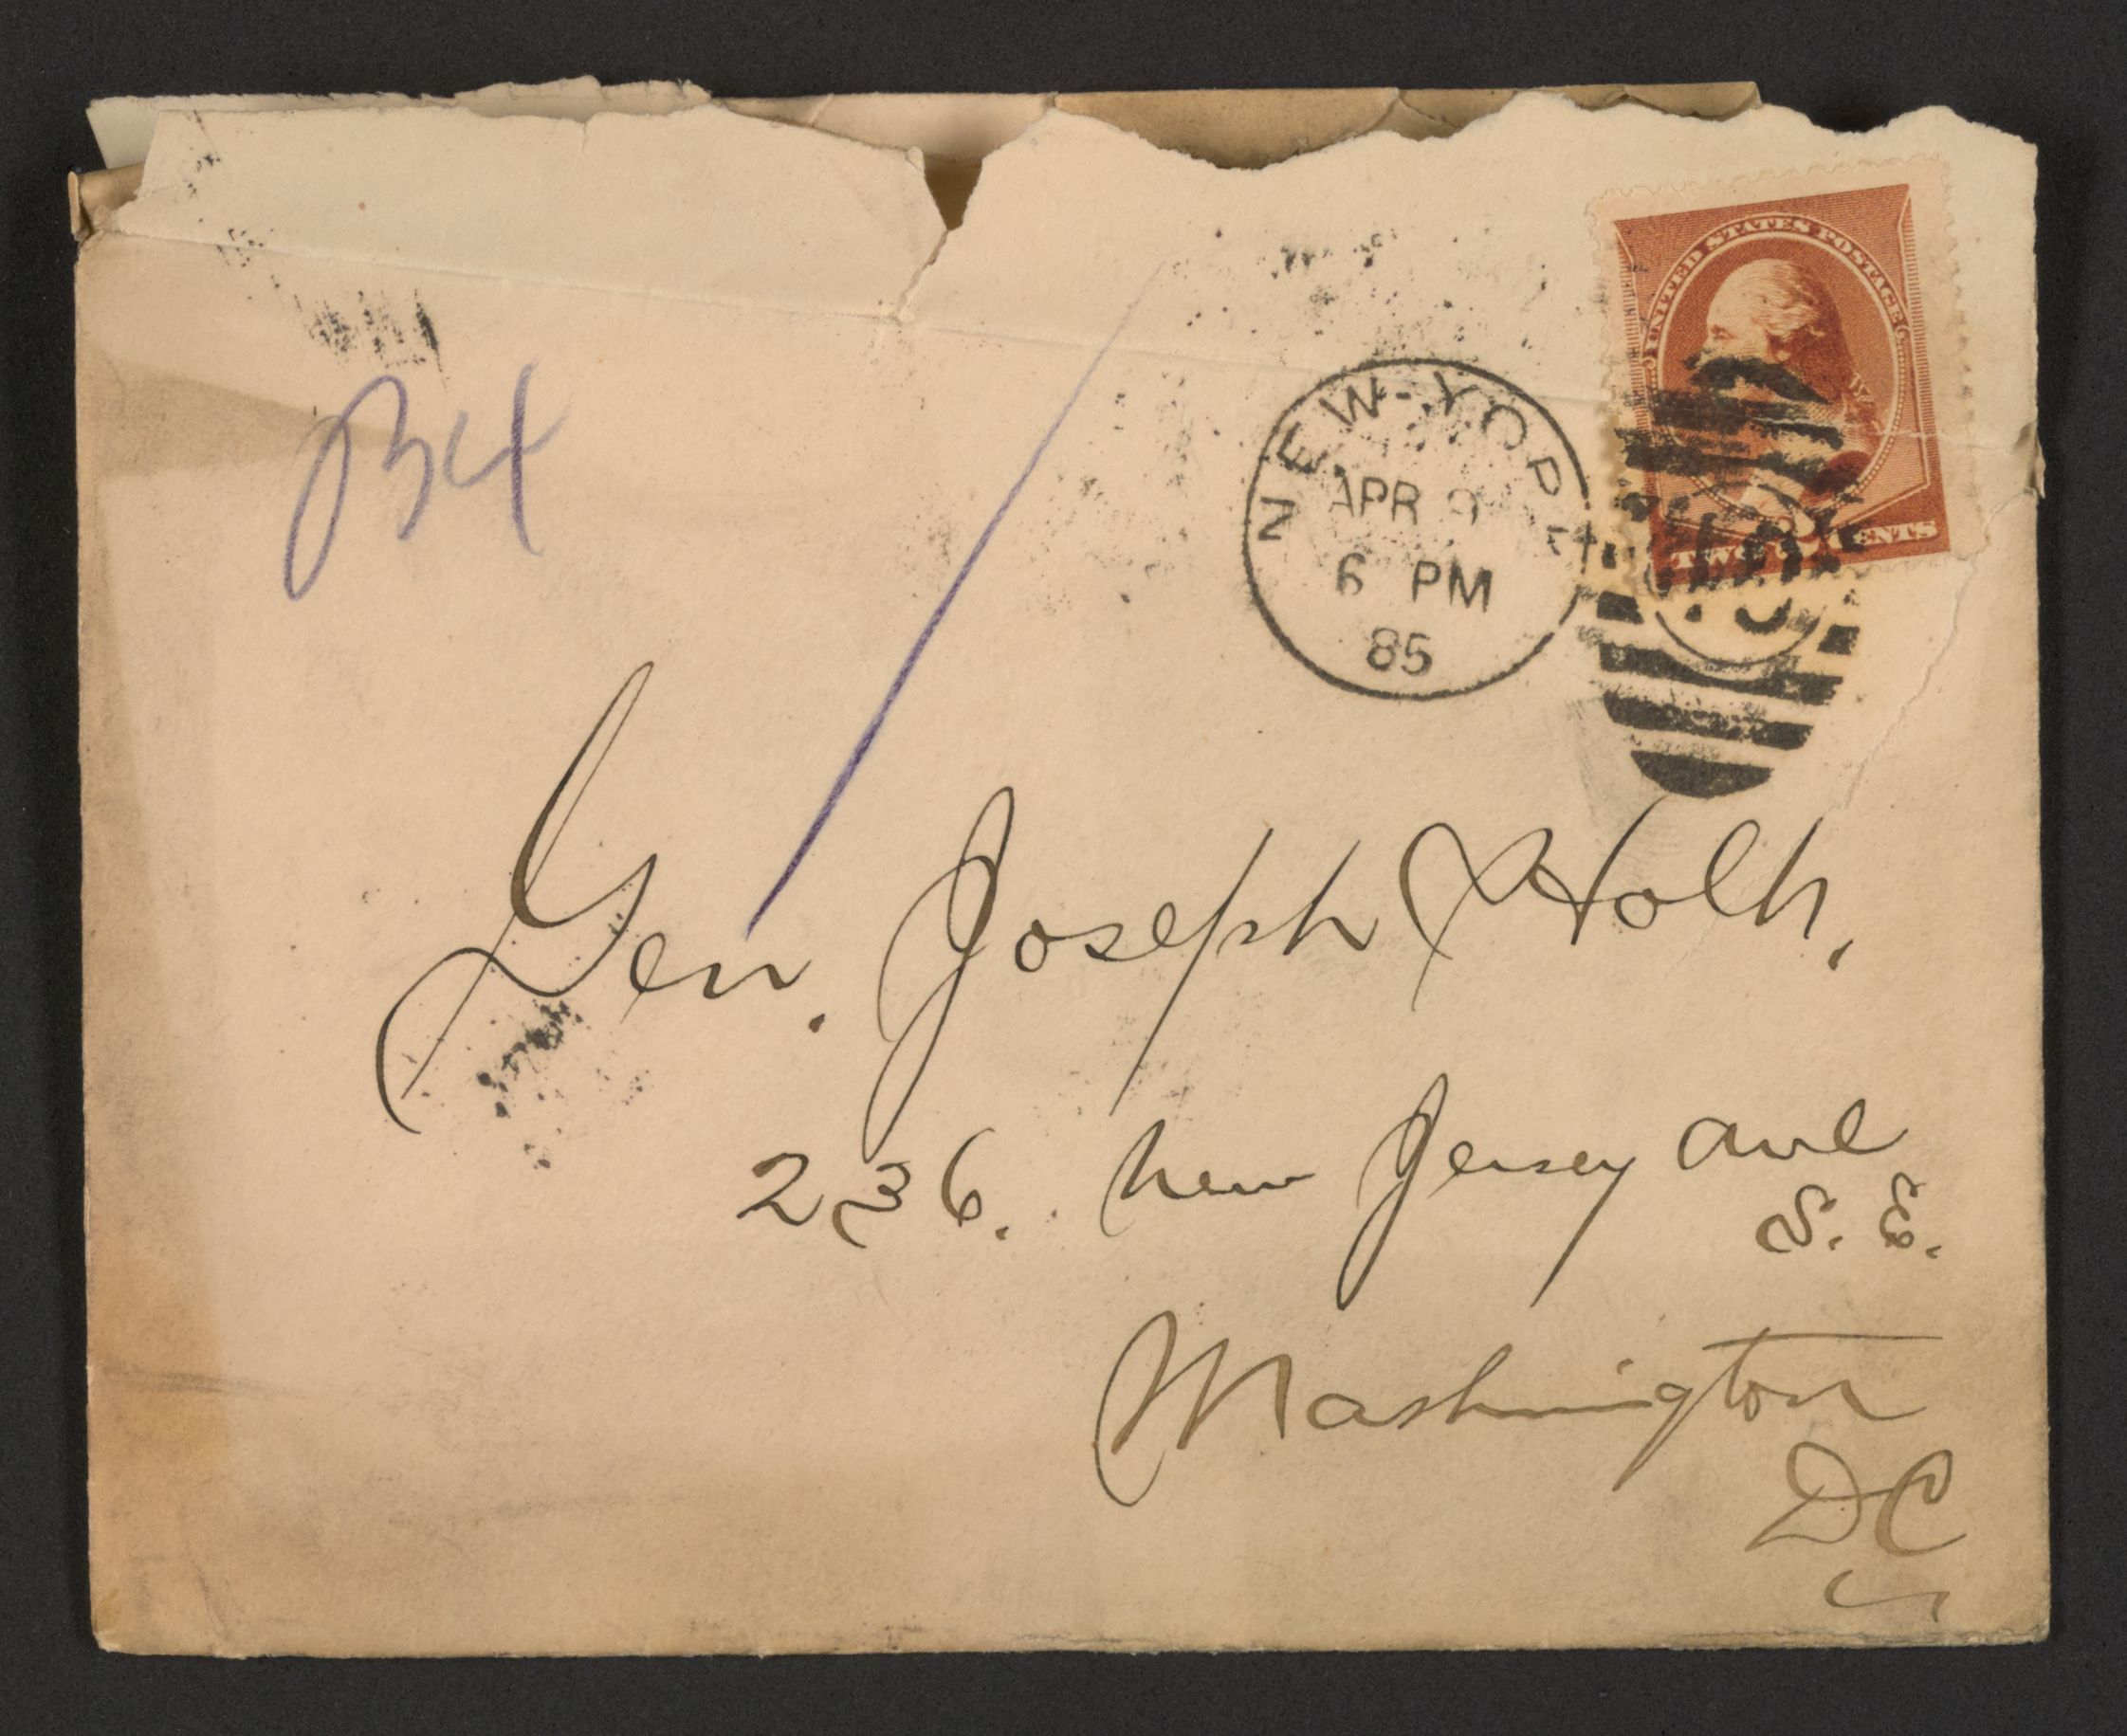 UNITED STATES POSTAGE
TWO CENTS
NEW-YORK
APR 9
6 PM
85
B4
Gen. Joseph Holt.
236. New Jersey Ave
S. E.
Washington
DC